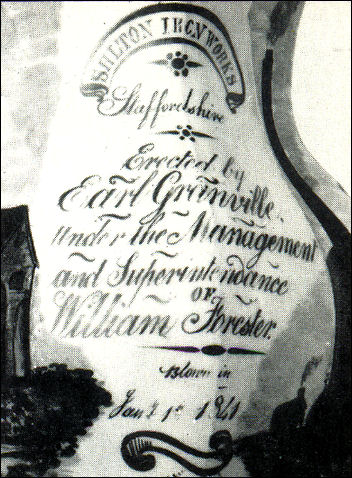 SHELTON IRONWORKS
Staffordshire
Erected by
Earl Granville.
Under the Management
and Superintendance
OF
William Forester.
Blown in
Jany 1st 1841